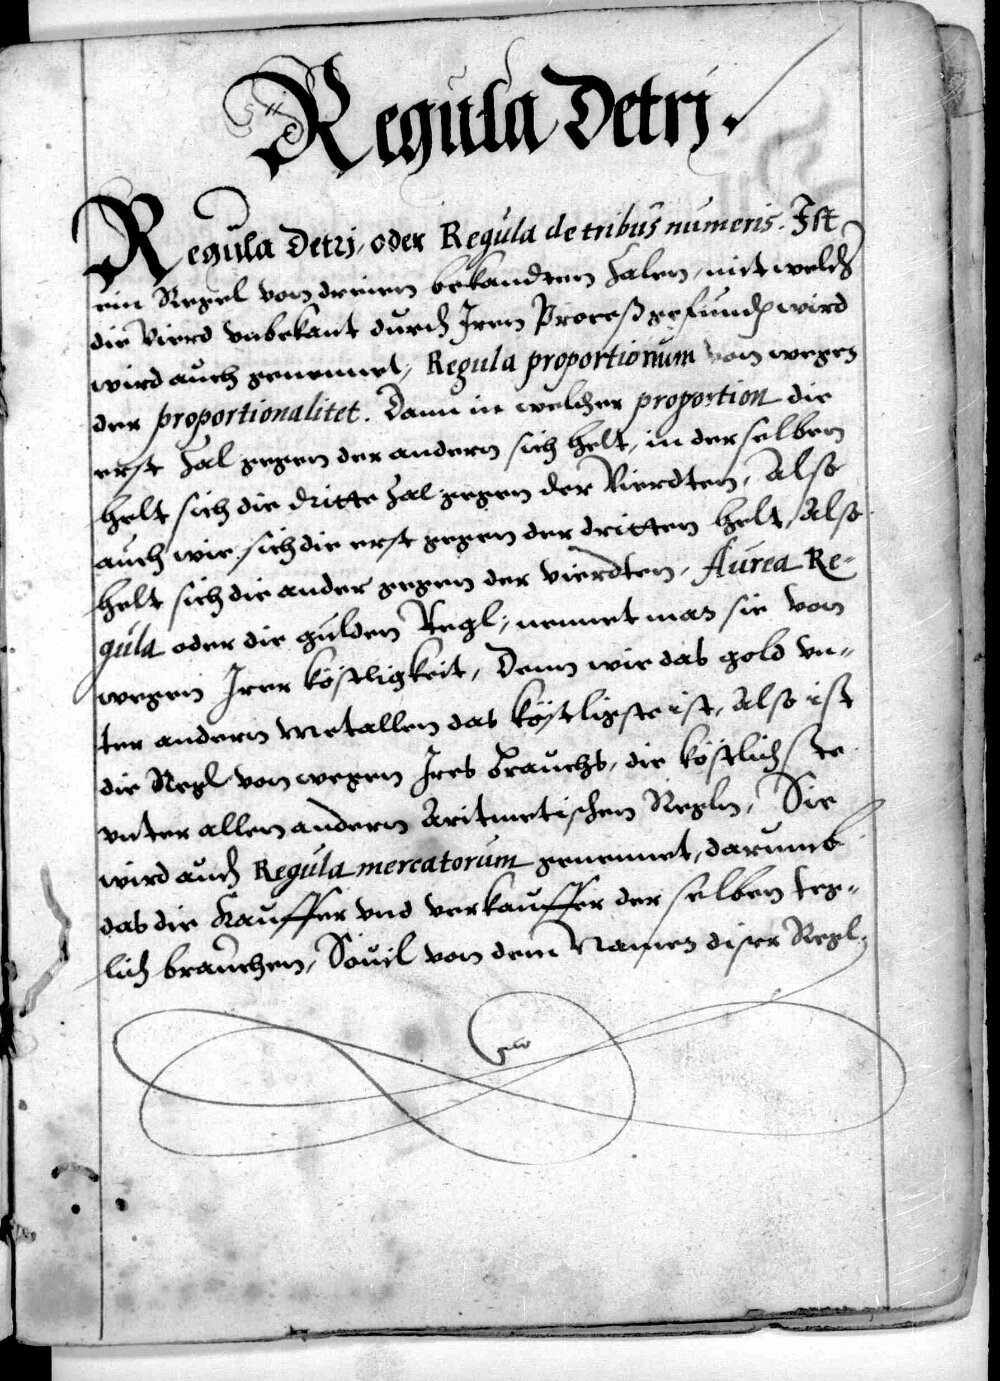 Regula Detrj.
Regula Detrj, oder Regula de tribus numeris. Ist
ein Regel von dreien bekandten Zalen, mit welch
die Vierd vnbekant durch Iren Proceß gefunden wird
wird auch genennet, Regula proportionum von wegen
der proportionalitet. Dann in welcher proportion die
erst Zal gegen der andern sich helt, in der selben
helt sich die dritte Zal gegen der Vierdten, Also
auch wie sich die erst gegen der dritten helt, Also
helt sich die ander gegen der vierdten, Aurea Re-
gula oder die gulden Regl, nennet man sie von
wegen Irer köstligkeit, Denn wie das gold vn-
ter andern metallen das köstligste ist, Also ist
die Regl von wegen Ires brauchs, die köstlichste
vnter allen andern Aritmetischen Regln, Sie
wird auch Regula mercatorum genennet, darumb
das die Kauffer vnd verkauffer der selben teg-
lich brauchen, Souil von dem Namen diser Regl,